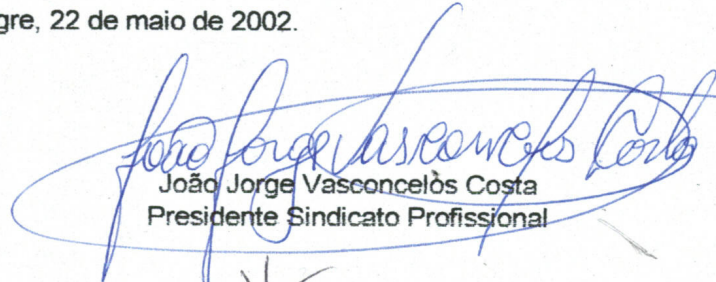 gre, 22 de maio de 2002.
João Jorge Vasconcelos Costa
João Jorge Vasconcelos Costa
Presidente Sindicato Profissional